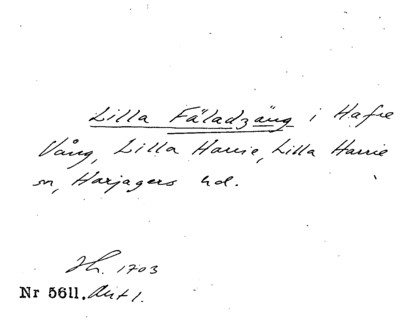 Lilla Fäladzäng i Hafre
Vång, Lilla Harrie, Lilla Harrie
sn, Harjagers hd.
Jh. 1703
Nr 5611. Akt 1.